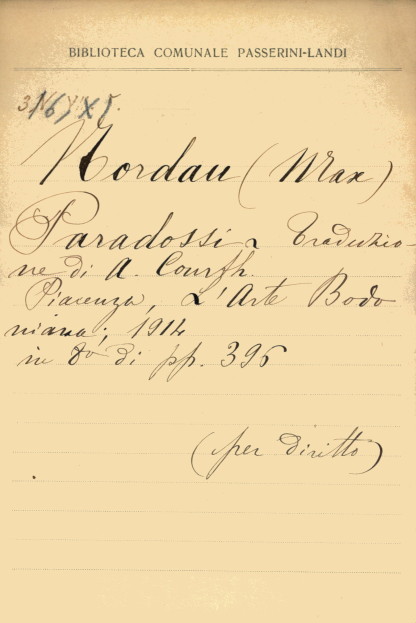 BIBLIOTECA COMUNALE PASSERINI-LANDI
Nordau (Max)
Paradossi - Traduzio-
ne di A. Courth.
Piacenza, L'Arte Bodo
niana; 1914
in 8º di pp. 396
(per diritto)